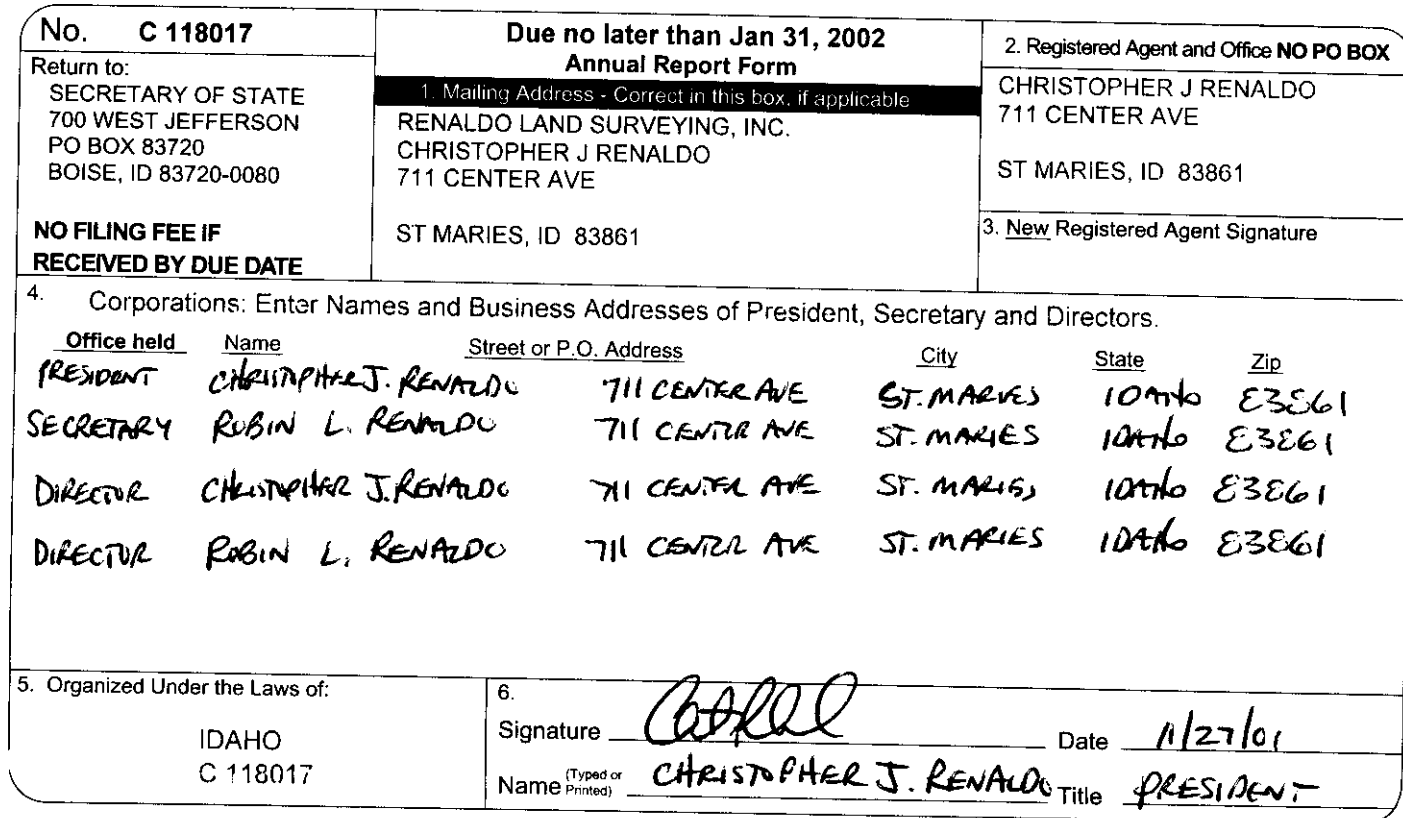 No. C 118017
Return to:
SECRETARY OF STATE
700 WEST JEFFERSON
PO BOX 83720
BOISE, ID 83720-0080
NO FILING FEE IF
RECEIVED BY DUE DATE
Due no later than Jan 31, 2002
Annual Report Form
1. Mailing Address - Correct in this box, if applicable
RENALDO LAND SURVEYING, INC.
CHRISTOPHER J RENALDO
711 CENTER AVE
ST MARIES, ID 83861
2. Registered Agent and Office NO PO BOX
CHRISTOPHER J RENALDO
711 CENTER AVE
ST MARIES, ID 83861
3. New Registered Agent Signature
4. Corporations: Enter Names and Business Addresses of President, Secretary and Directors.
Office held Name Street or P.O. Address City State Zip
PRESIDENT CHRISTOPHER J. RENALDO 711 CENTER AVE ST. MARIES IDAHO 83861
SECRETARY ROBIN L. RENALDO 711 CENTER AVE ST. MARIES IDAHO 83861
DIRECTOR CHRISTOPHER J. RENALDO 711 CENTER AVE ST. MARIES IDAHO 83861
DIRECTOR ROBIN L. RENALDO 711 CENTER AVE ST. MARIES IDAHO 83861
5. Organized Under the Laws of:
IDAHO
C 118017
6.
Signature Date 11/27/01
Name (Typed or Printed) CHRISTOPHER J. RENALDO Title PRESIDENT